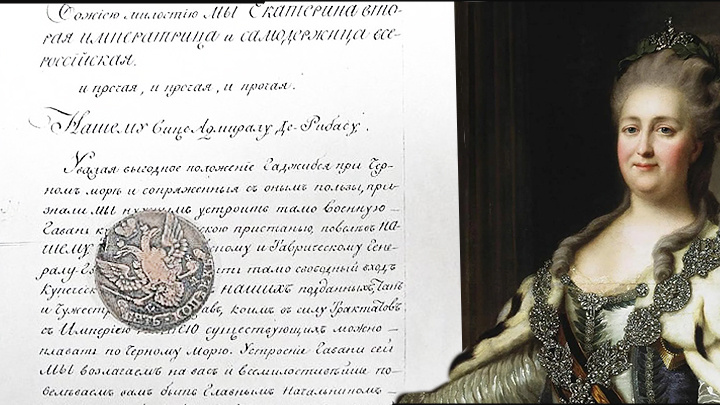 Божіею милостію МЫ Екатерина вто-
рая императрица и самодержица все-
россійская.
и прочая, и прочая, и прочая.
Нашему Вице Адмиралу Де-Рибасу.
Уважая выгодное положеніе Гаджибея при Чер-
номъ морѣ и сопряженныя съ онымъ пользы, при-
знали МЫ нужнымъ устроить тамо военную
Гавань ческою пристанью, повелѣвъ НА-
ШЕМУ скому и Таврическому Гене-
ралу тамо свободный входъ
Купечес НАШИХЪ подданныхъ,
и Чужест авъ, коимъ въ силу Трактатовъ
съ Имперіею НАШЕЮ существующихъ можно
плавать по Черному Морю. Устроеніе Гавани сей
МЫ возлагаемъ на васъ и всемилостивѣйше по-
велѣваемъ вамъ быть Главнымъ Начальникомъ